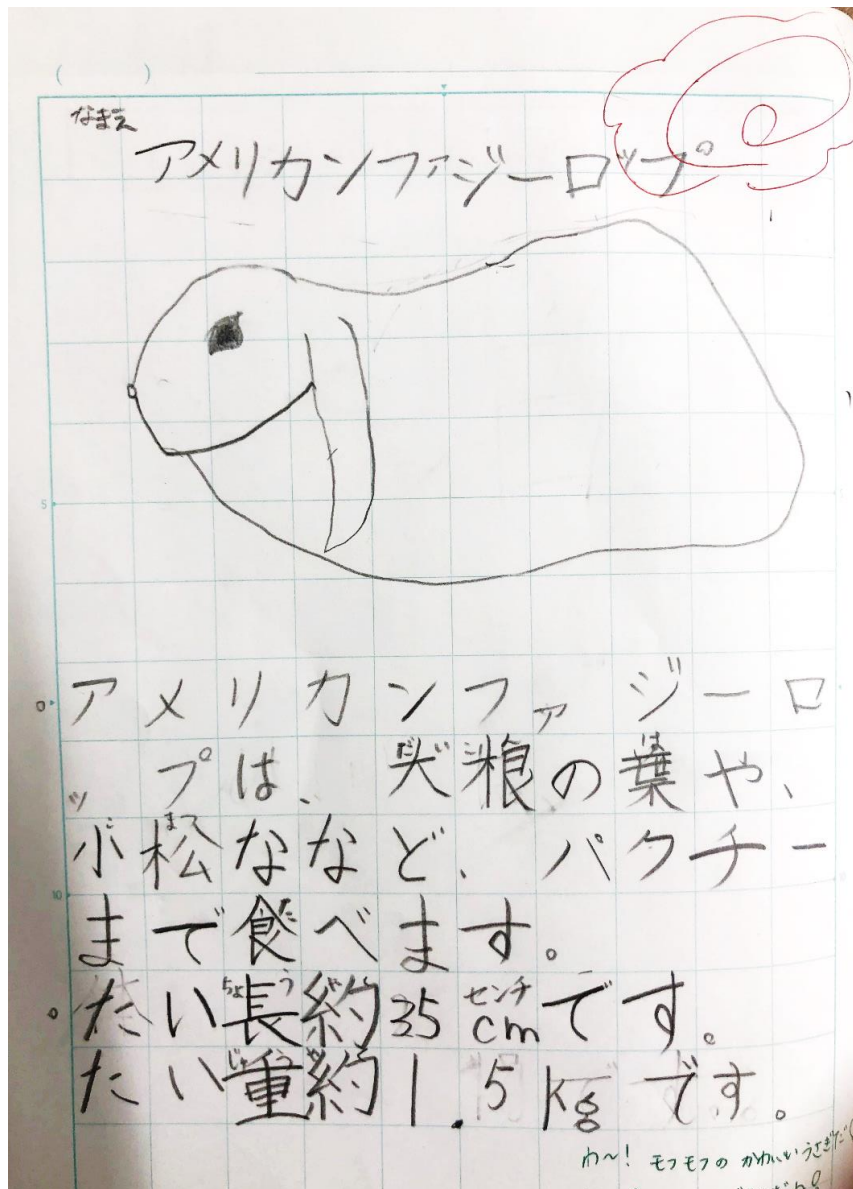 なまえ
アメリカンファジーロップ
アメリカンファジーロ
ップは、大根の葉や、
小松ななど、パクチー
まで食べます。
たい長約35cmです。
たい重約1.5kgです。
わ〜!モフモフのかわいいうさぎだ
5
10